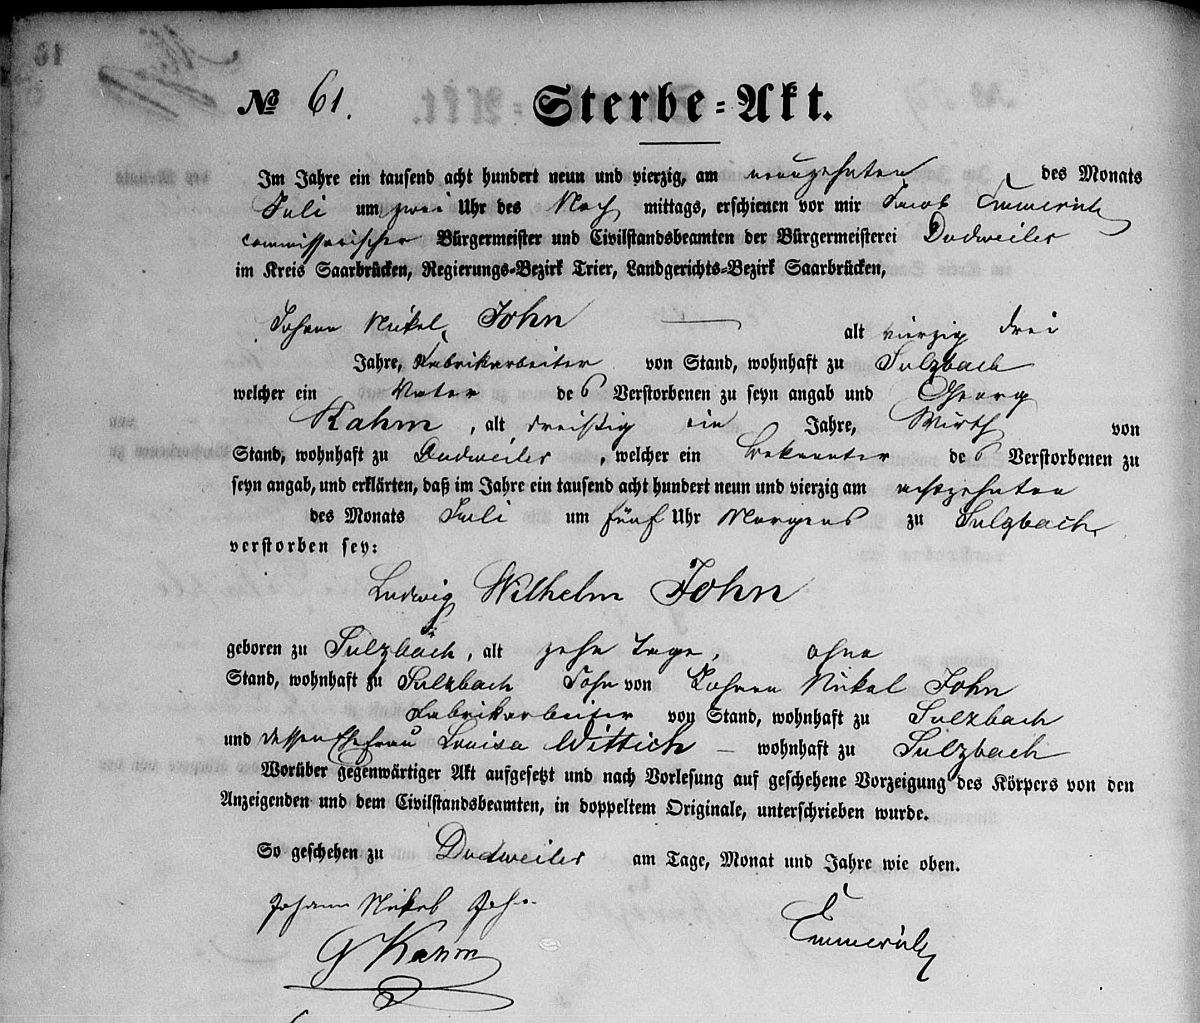 № 61. Sterbe=Akt.
Im Jahre ein tausend acht hundert neun und vierzig, am neunzehnten des Monats
Juli um zwei Uhr des Nach mittags, erschienen vor mir Jacob Emmerich
commissarischer Bürgermeister und Civilstandsbeamten der Bürgermeisterei Dudweiler
im Kreis Saarbrücken, Regierungs-Bezirk Trier, Landgerichts-Bezirk Saarbrücken,
Johann Nickel John alt vierzig drei
Jahre, Fabrikarbeiter von Stand, wohnhaft zu Sulzbach
welcher ein Vater des Verstorbenen zu seyn angab und Georg
Kahm, alt dreißig ein Jahre, Wirth von
Stand, wohnhaft zu Dudweiler, welcher ein Bekannter des Verstorbenen zu
seyn angab, und erklärten, daß im Jahre ein tausend acht hundert neun und vierzig am achtzehnten
des Monats Juli um fünf Uhr Morgens zu Sulzbach
verstorben sey:
Ludwig Wilhelm John
geboren zu Sulzbach, alt zehn Tage, ohne
Stand, wohnhaft zu Sulzbach Sohn von Johann Nickel John
Fabrikarbeiter von Stand, wohnhaft zu Sulzbach
und dessen Ehefrau Louisa Wittich — wohnhaft zu Sulzbach
Worüber gegenwärtiger Akt aufgesetzt und nach Vorlesung auf geschehene Vorzeigung des Körpers von den
Anzeigenden und dem Civilstandsbeamten, in doppeltem Originale, unterschrieben wurde.
So geschehen zu Dudweiler am Tage, Monat und Jahre wie oben.
Johann Nickel John
G Kahm
Emmerich